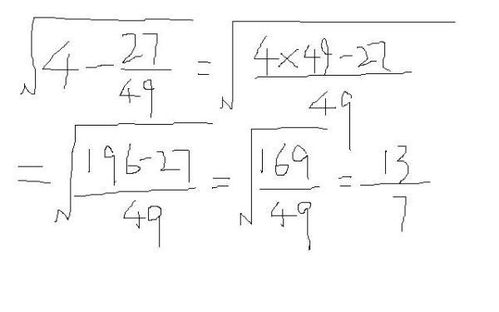 √(4 - 27/49) = √((4×49-27)/49)
= √((196-27)/49) = √(169/49) = 13/7